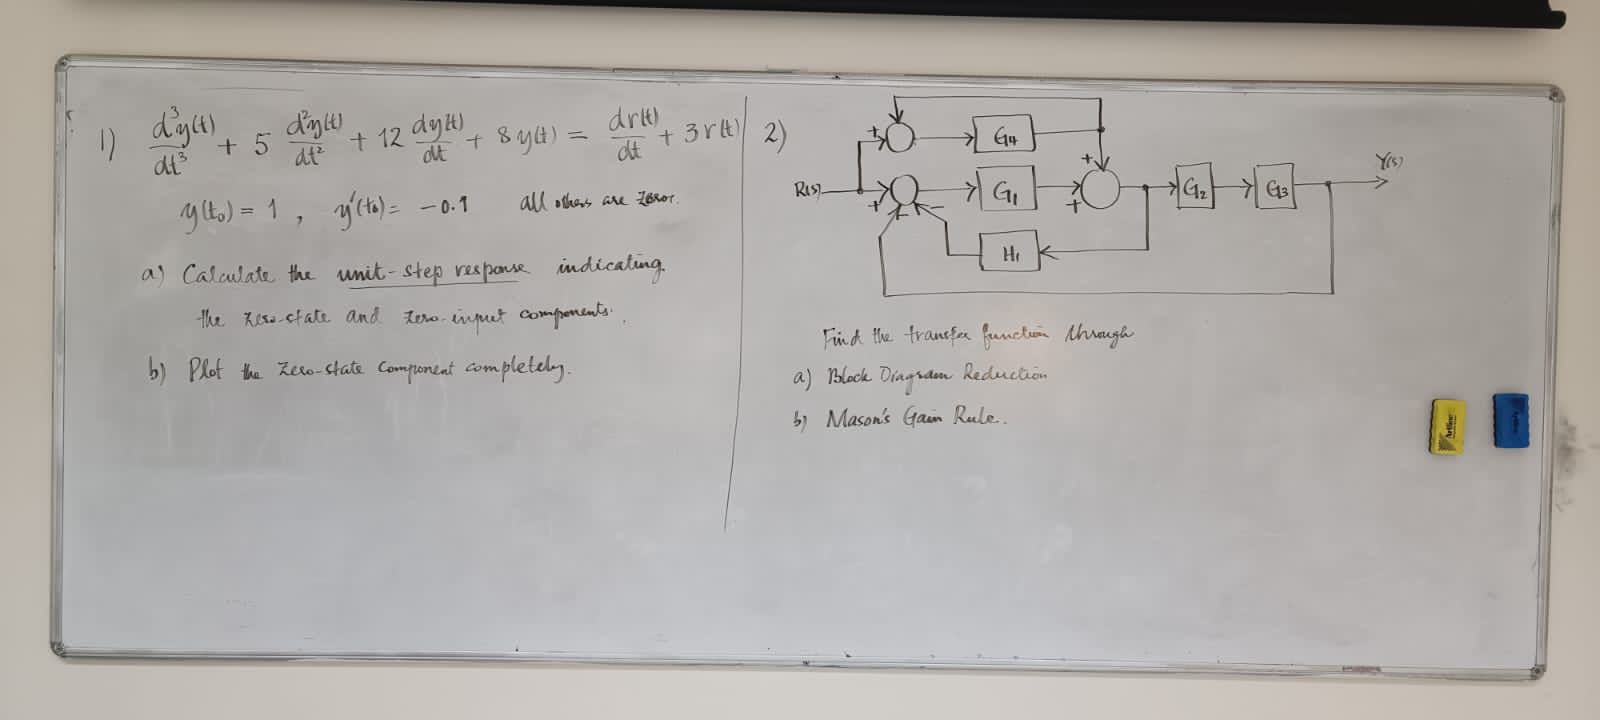 1) d³y(t)/dt³ + 5 d²y(t)/dt² + 12 dy(t)/dt + 8y(t) = dr(t)/dt + 3r(t)
y(t₀) = 1 , y'(t₀) = -0.1 all others are zeros.
a) Calculate the unit-step response indicating
the zero-state and zero-input components.
b) Plot the zero-state component completely.
2)
+ G4
+ Y(s)
R(s) G1 G2 G3
+ - - +
H1
Find the transfer function through
a) Block Diagram Reduction
b) Mason's Gain Rule.
Artline